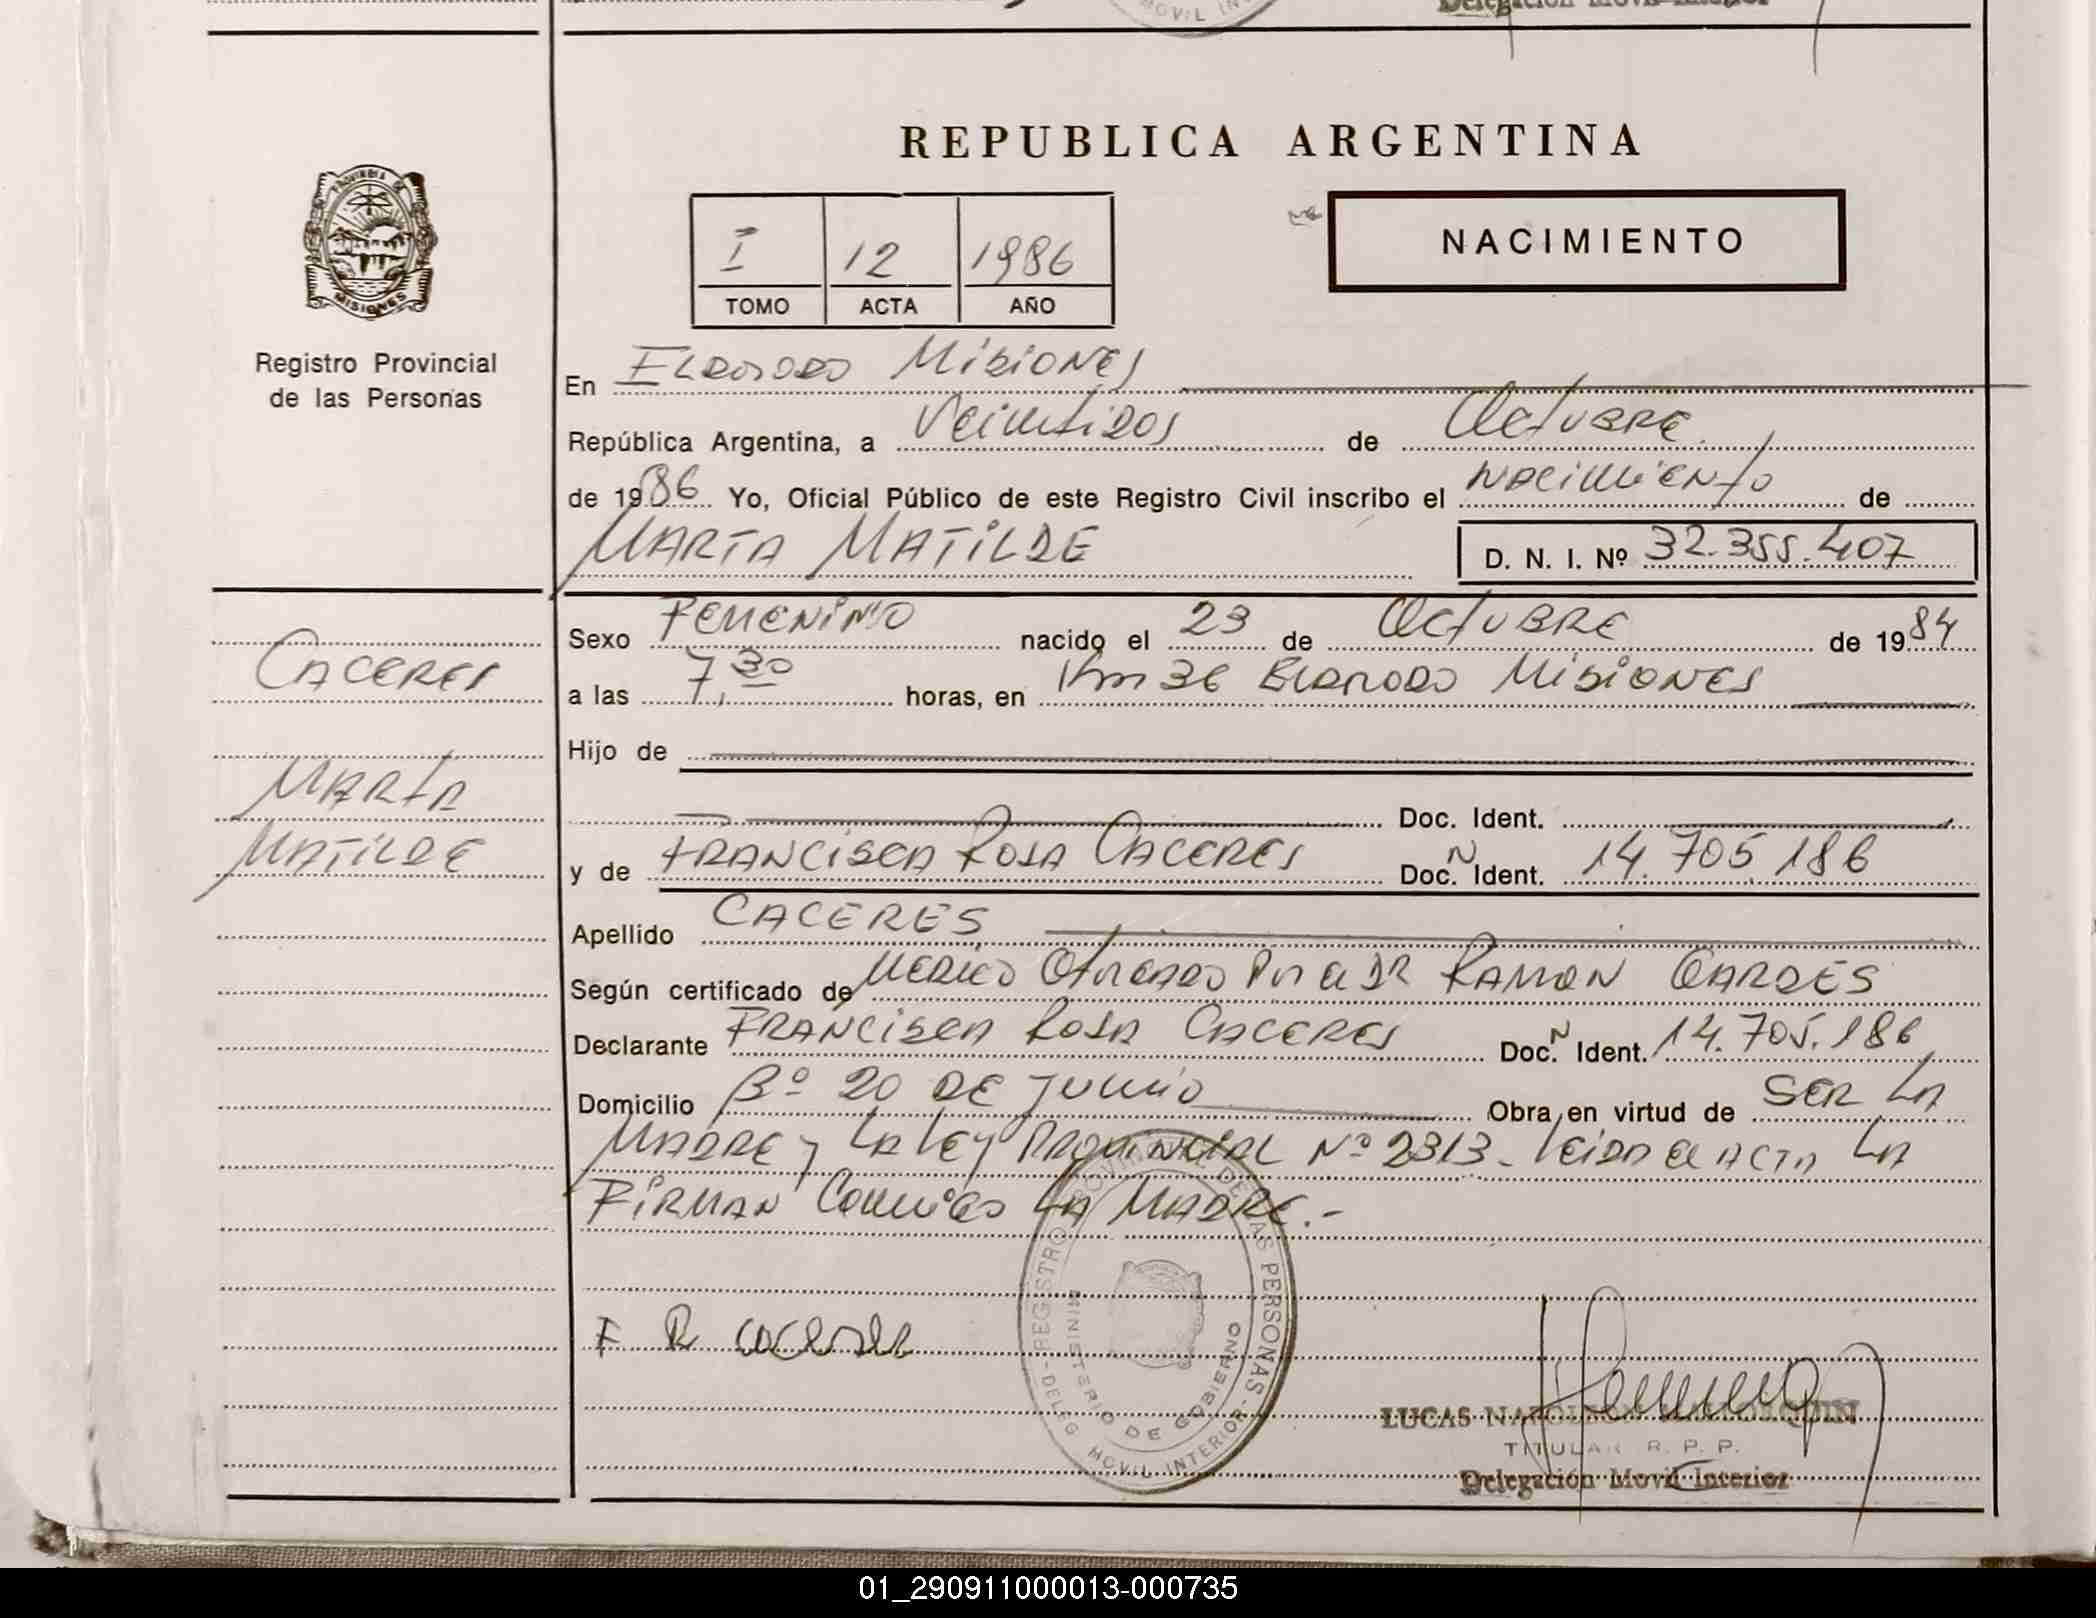 Delegación Movil Interior
MOVIL IN
REPUBLICA ARGENTINA
PROVINCIA DE
MISIONES
Registro Provincial
de las Personas
I 12 1986
TOMO ACTA AÑO
NACIMIENTO
En ELDORADO MISIONES
República Argentina, a Veintidos de Octubre
de 1986 Yo, Oficial Público de este Registro Civil inscribo el nacimiento de
MARTA MATILDE D. N. I. Nº 32.355.407
Sexo FEMENINO nacido el 23 de Octubre de 1984
a las 7,30 horas, en Km 36 ELDORADO MISIONES
Hijo de
Doc. Ident.
y de FRANCISCA ROSA CACERES Doc. N Ident. 14.705.186
Apellido CACERES
Según certificado de MEDICO Otorgado Por el DR RAMON GARDES
Declarante FRANCISCA ROSA CACERES Doc. N Ident. 14.705.186
Domicilio Bº 20 DE JUNIO Obra en virtud de SER LA
MADRE y LA LEY PROVINCIAL Nº 2313. leida el ACTA LA
FIRMAN Conmigo LA MADRE.-
CACERES
MARTA
MATILDE
F R caceres
REGISTRO PROVINCIAL DE LAS PERSONAS
MINISTERIO DE GOBIERNO
-DELEG MOVIL INTERIOR-
LUCAS NAPOLEON
TITULAR R. P. P.
Delegación Movil Interior
01_290911000013-000735